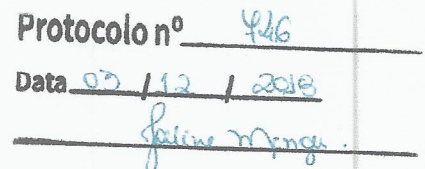 Protocolo nº 746
Data 03 / 12 / 2018